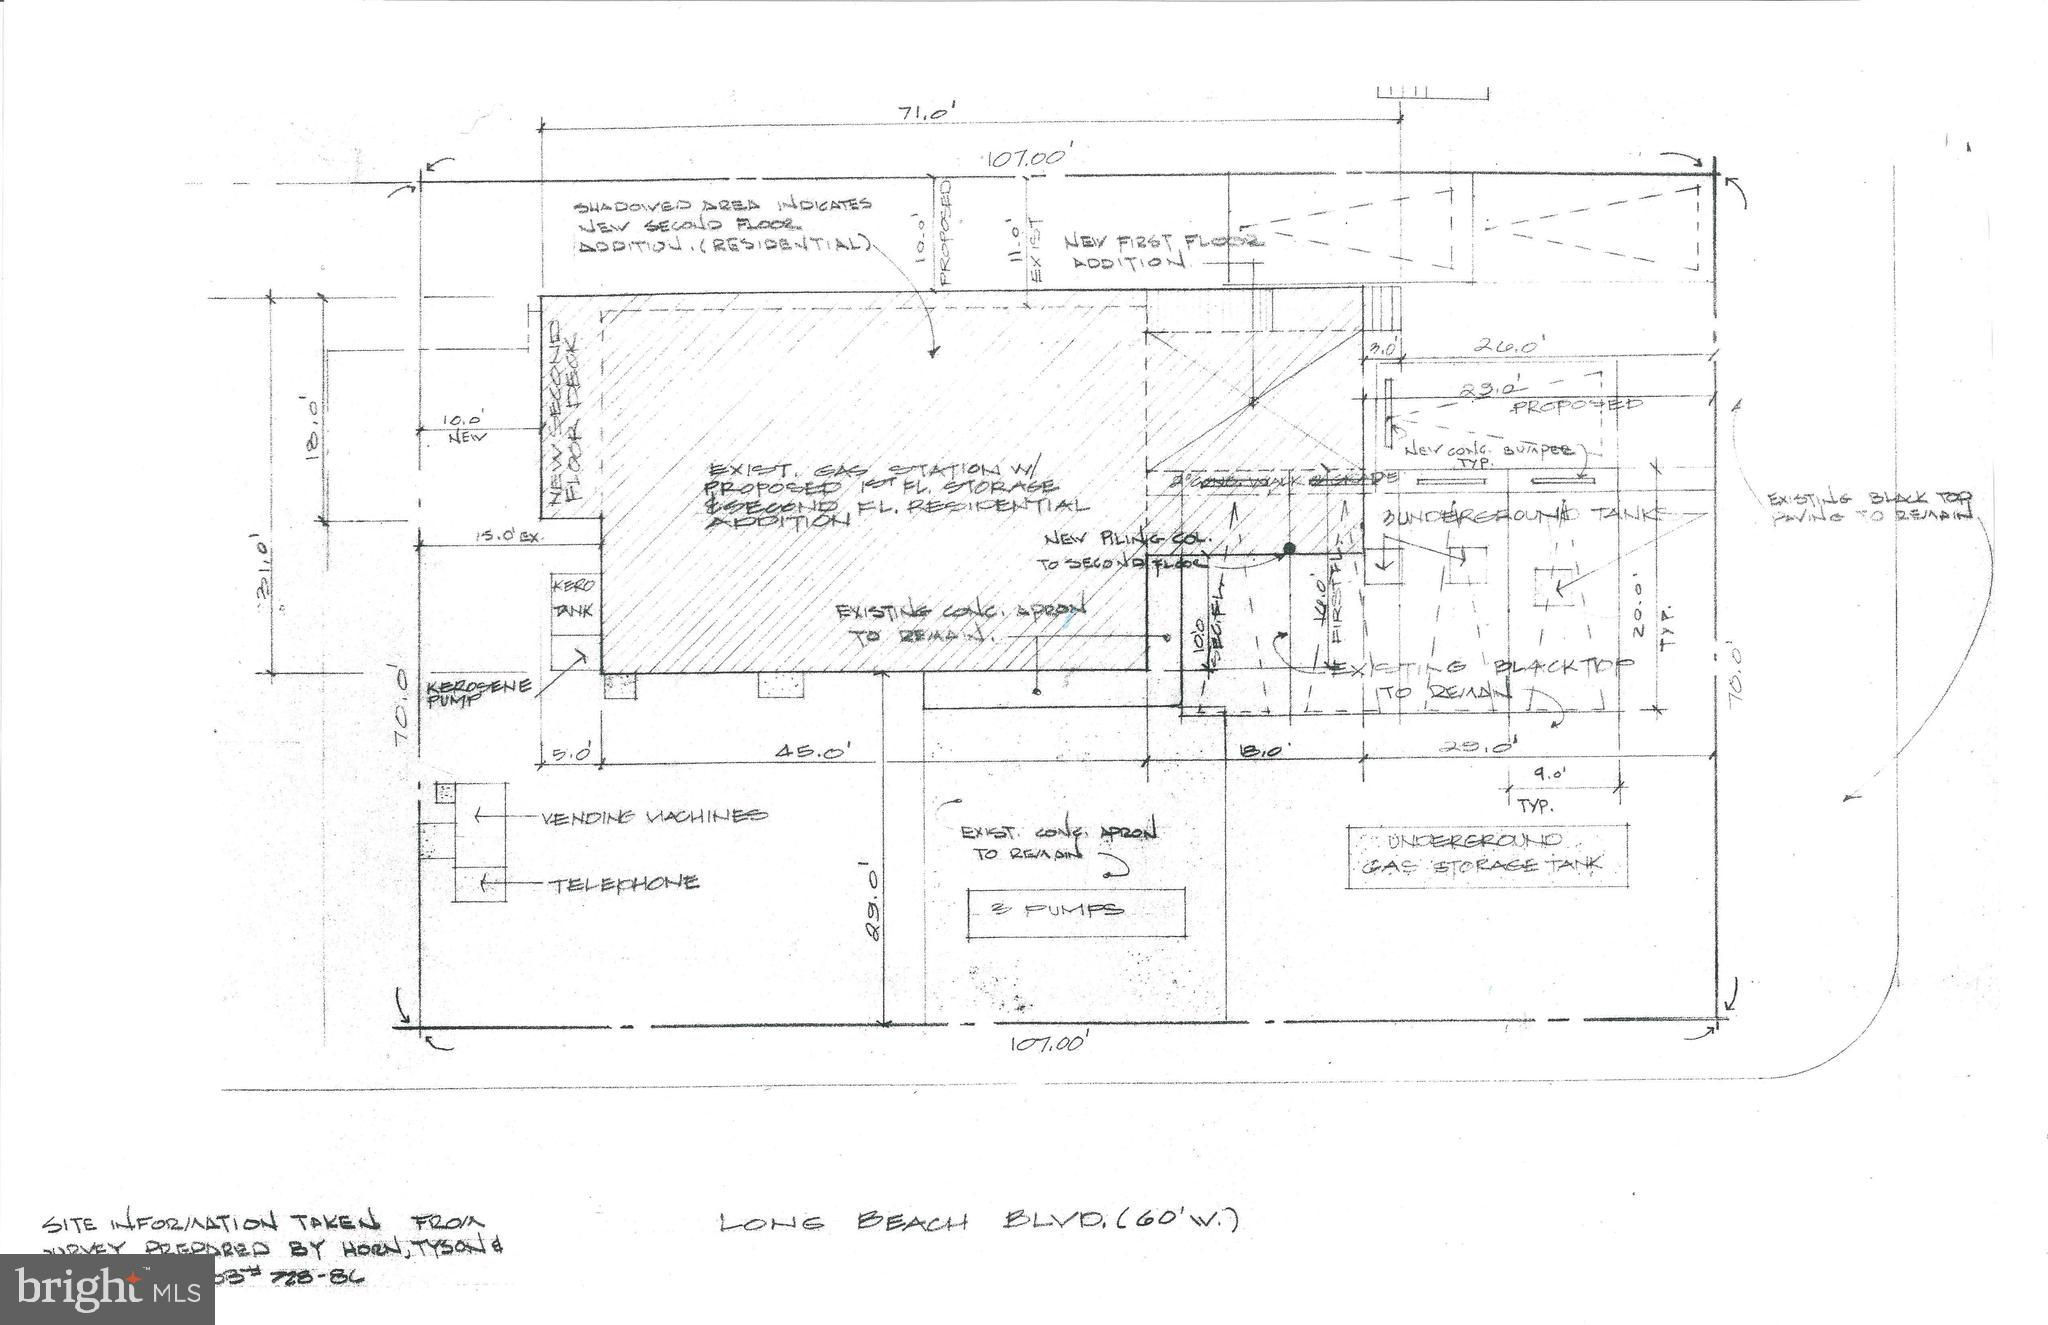 71.0'
107.00'
SHADOWED AREA INDICATES
NEW SECOND FLOOR
ADDITION. (RESIDENTIAL)
10.0'
PROPOSED
11.0'
EXIST
NEW FIRST FLOOR
ADDITION
NEW SECOND
FLOOR DECK
18.0'
31.0'
10.0'
NEW
15.0' EX.
3.0'
26.0'
29.0'
PROPOSED
NEW CONC. BUMPER
TYP.
EXIST. GAS STATION W/
PROPOSED 1ST FL. STORAGE
& SECOND FL. RESIDENTIAL
ADDITION
CONC. WALK @ GRADE
3 UNDERGROUND TANKS
EXISTING BLACK TOP
PAVING TO REMAIN
NEW PILING COL.
TO SECOND FLOOR
KERO
TANK
EXISTING CONC. APRON
TO REMAIN.
10.0
SEC. FL.
FIRST FL.
20.0'
TYP.
EXISTING BLACKTOP
TO REMAIN
KEROSENE
PUMP
70.0'
70.0'
5.0'
45.0'
18.0'
29.0'
9.0'
TYP.
VENDING MACHINES
TELEPHONE
29.0'
EXIST. CONC. APRON
TO REMAIN
3 PUMPS
UNDERGROUND
GAS STORAGE TANK
107.00'
LONG BEACH BLVD. (60' W.)
SITE INFORMATION TAKEN FROM
SURVEY PREPARED BY HORN, TYSON &
728-86
bright MLS